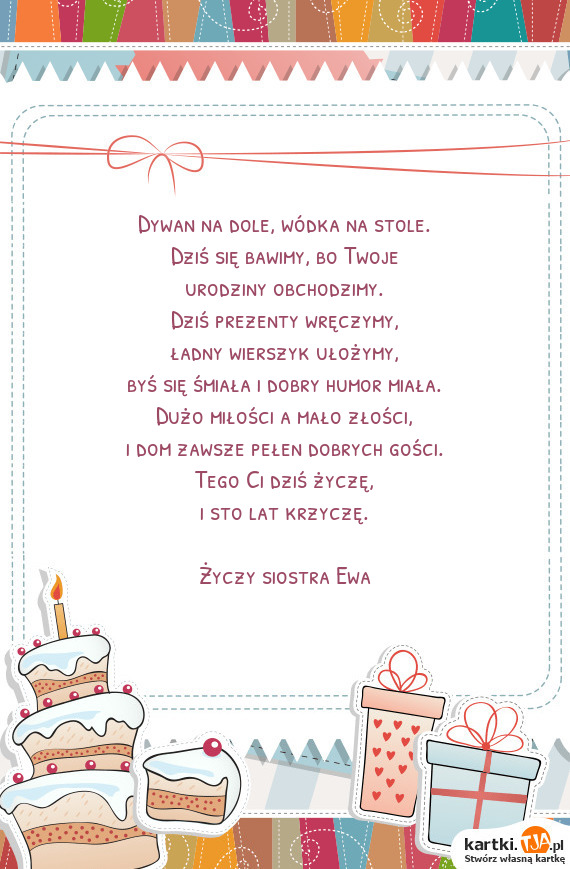 Dywan na dole, wódka na stole.
Dziś się bawimy, bo Twoje
urodziny obchodzimy.
Dziś prezenty wręczymy,
ładny wierszyk ułożymy,
byś się śmiała i dobry humor miała.
Dużo miłości a mało złości,
i dom zawsze pełen dobrych gości.
Tego Ci dziś życzę,
i sto lat krzyczę.
Życzy siostra Ewa
kartki.TJA.pl
Stwórz własną kartkę